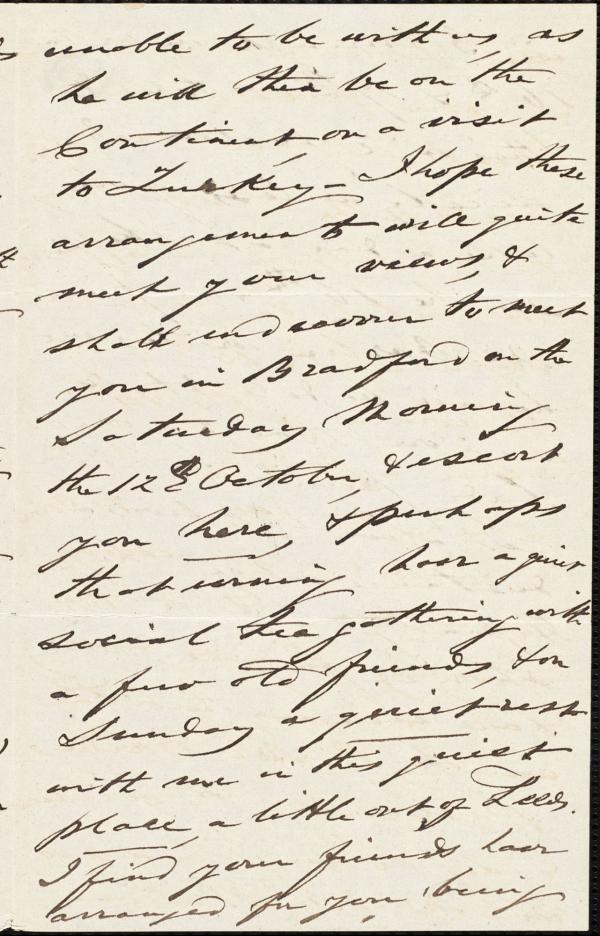 unable to be with us, as
he will then be on the
Continent, on a visit
to Turkey - I hope these
arrangements will quite
meet your views, &
shall endeavour to meet
you in Bradford on the
Saturday Morning
the 12th October, & escort
you here, & perhaps
that evening have a quiet
social tea gathering with
a few old friends, & on
Sunday a quiet rest
with me in this quiet
place, a little out of Leeds.
I find your friends have
arranged for you, being